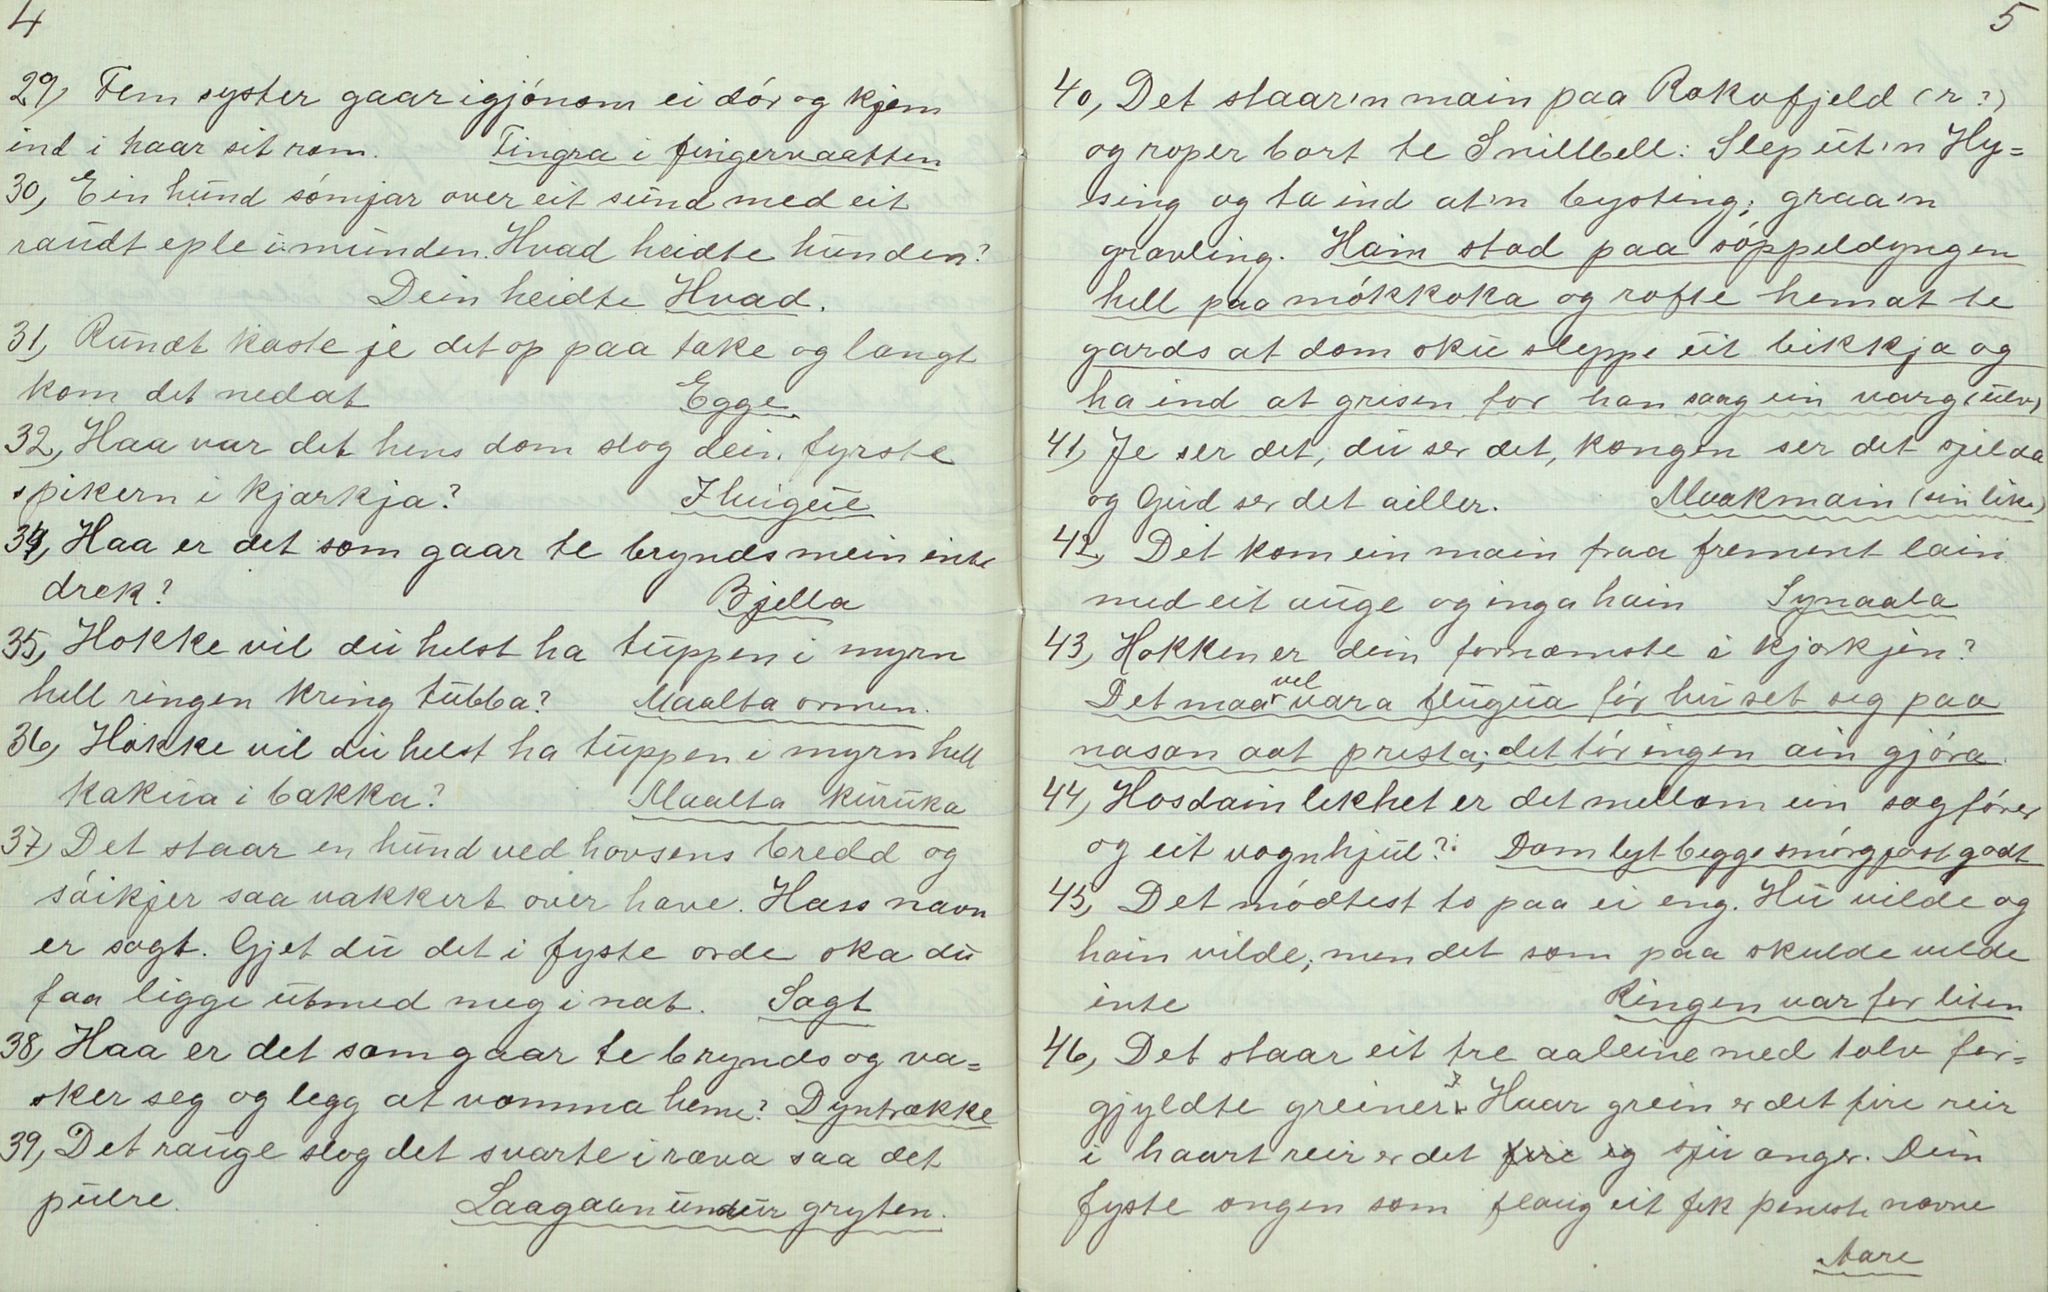 4
29, Fem syster gaar igjónom ei dór og kjem
ind i haar sit rom. Fingra i fingervaatten
30, Ein hund sómjar over eit sund med eit
raudt eple i munden. Hvad heidte hunden?
Dein heidte Hvad.
31, Rundt kaste je det op paa take og langt
kom det nedat Egge
32, Haa var det hens dom slog dein fyrste
spikern i kjærkja? I huigue
34, Haa er det som gaar te brynds mein inte
drek? Bjella
35, Hokke vil du helst ha tuppen i myrn
hell ringen kring tubba? Maalta ormen.
36, Hokke vil du helst ha tuppen i myrn hell
kakua i bakka? Maalta kuruka
37, Det staar en hund ved havsens bredd og
sóikjer saa vakkert over have. Hass navn
er sagt. Gjet du det i fyste orde ska du
faa ligge utmed meg i nat. Sagt
38, Haa er det som gaar te brynds og va=
sker seg og legg at vomma heme? Dyntrække
39, Det rauge slog det svarte i ræva saa det
putre. Laagaan undur gryten.
5
40, Det staar'n main paa Rakafjeld (r?)
og roper bort te Snillbell: Slep ut'n Hy=
sing og ta ind at'n bysting; graa'n
gravling. Hain stod paa sóppeldyngen
hell paa mókkoka og rofte hemat te
gards at dom sku sleppe ut bikkja og
ha ind at grisen for han saag ein varg (ulv)
41, Je ser det, du ser det, kongen ser det sjelda
og Gud ser det aller. Maakmain (sin like)
42, Det kom ein main fraa frement lain
med eit auge og inga hain Synaala
43, Hokken er dein fornæmste i kjørkjen?
Det maa vel vara flugua fór hu set seg paa
nasan aat presta; det tór ingen ain gjóra.
44, Hosdain likhet er det mellom ein sagfórer
og eit vognhjul? Dom lyt begge smórgjast godt
45, Det módtest to paa ei eng. Hu vilde og
hain vilde; men det som paa skulde vilde
inte Ringen var for liten
46, Det staar eit tre aaleine med tolv for=
gjyldte greiner. I Hvar grein er det fire reir
i haart reir er det sju onger. Dein
fyste ongen som flaug ut fek peneste navne
Aare